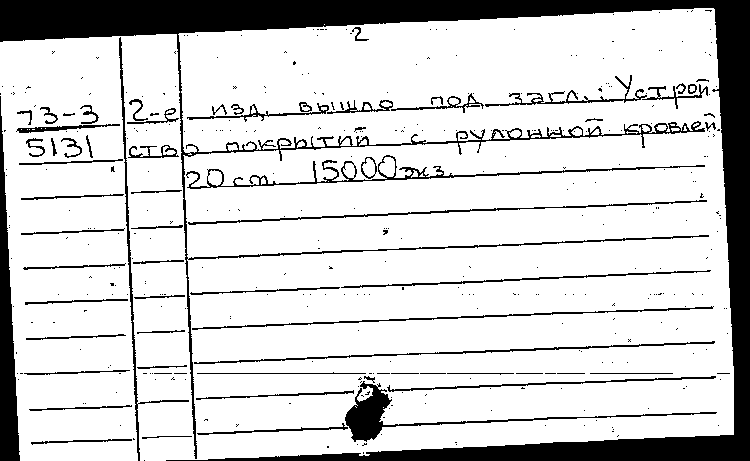 2
73-3 2-е изд. вышло под загл.: Устрой-
5131 ство покрытий с рулонной кровлей.
20 ст. 15000 экз.